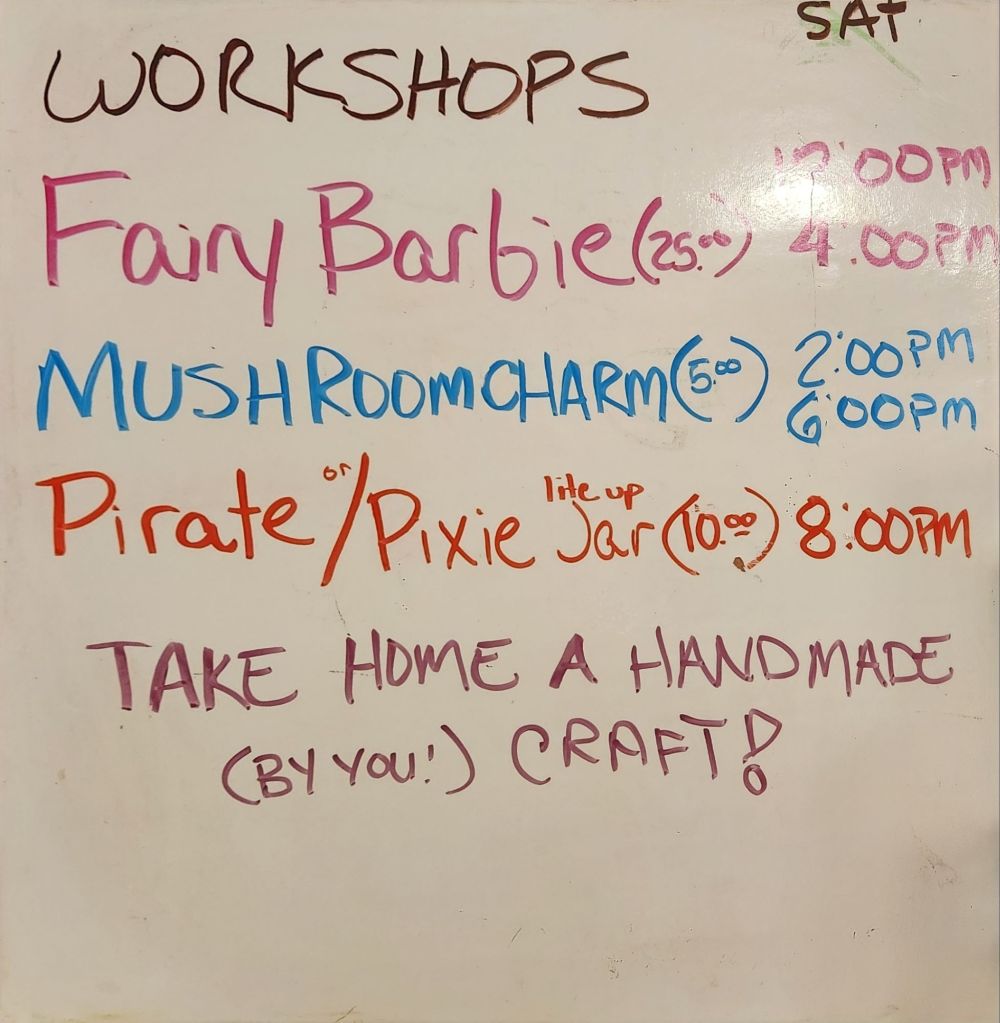 SAT
WORKSHOPS
12:00PM
Fairy Barbie (25.00) 4:00PM
MUSHROOM CHARM (5.00) 2:00PM
6:00PM
Pirate or / Pixie lite up Jar (10.00) 8:00PM
TAKE HOME A HANDMADE
(BY YOU!) CRAFT!